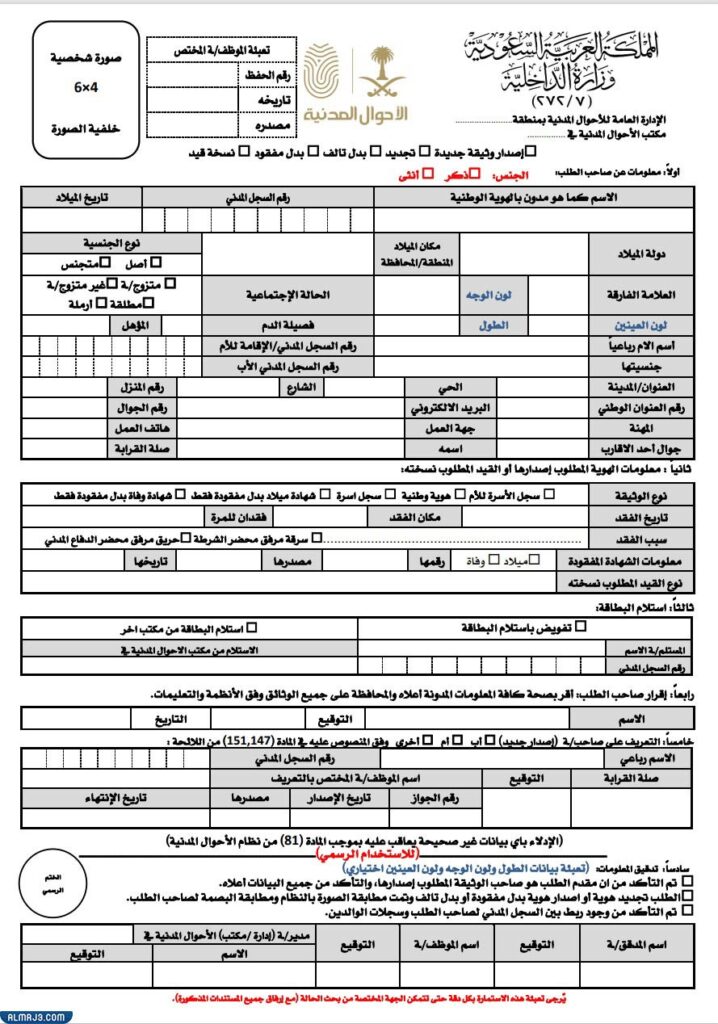 المملكة العربية السعودية
وزارة الداخلية
(٢٧٢/٧)
الإدارة العامة للأحوال المدنية بمنطقة....................
مكتب الأحوال المدنية في ....................
الأحوال المدنية
تعبئة الموظف/ة المختص
رقم الحفظ
تاريخه
مصدره
صورة شخصية
6×4
خلفية الصورة
إصدار وثيقة جديدة تجديد بدل تالف بدل مفقود نسخة قيد
اولاً: معلومات عن صاحب الطلب: الجنس: ذكر أنثى
الاسم كما هو مدون بالهوية الوطنية رقم السجل المدني تاريخ الميلاد
دولة الميلاد مكان الميلاد المنطقة/المحافظة نوع الجنسية
أصل متجنس
العلامة الفارقة لون الوجه الحالة الإجتماعية متزوج/ة غير متزوج/ة
مطلقة أرملة
لون العينين الطول فصيلة الدم المؤهل
أسم الام رباعياً رقم السجل المدني/الإقامة للأم
جنسيتها رقم السجل المدني الأب
العنوان/المدينة الحي الشارع رقم المنزل
رقم العنوان الوطني البريد الالكتروني رقم الجوال
المهنة جهة العمل هاتف العمل
جوال أحد الاقارب اسمه صلة القرابة
ثانياً: معلومات الهوية المطلوب إصدارها أو القيد المطلوب نسخته:
نوع الوثيقة سجل الأسرة للأم هوية وطنية سجل اسرة شهادة ميلاد بدل مفقودة فقط شهادة وفاة بدل مفقودة فقط
تاريخ الفقد مكان الفقد فقدان للمرة
سبب الفقد .................... سرقة مرفق محضر الشرطة حريق مرفق محضر الدفاع المدني
معلومات الشهادة المفقودة ميلاد وفاة رقمها مصدرها تاريخها
نوع القيد المطلوب نسخته
ثالثاً: استلام البطاقة:
تفويض باستلام البطاقة استلام البطاقة من مكتب اخر
المستلم/ة الاسم الاستلام من مكتب الاحوال المدنية في
رقم السجل المدني
رابعاً: إقرار صاحب الطلب: أقر بصحة كافة المعلومات المدونة أعلاه والمحافظة على جميع الوثائق وفق الأنظمة والتعليمات.
الاسم التوقيع التاريخ
خامساً: التعريف على صاحب/ة (إصدار جديد) أب أم أخرى وفق المنصوص عليه في المادة (151,147) من اللائحة:
الاسم رباعي رقم السجل المدني
صلة القرابة التوقيع اسم الموظف/ة المختص بالتعريف
رقم الجواز تاريخ الإصدار مصدرها تاريخ الإنتهاء
(الإدلاء باي بيانات غير صحيحة يعاقب عليه بموجب المادة (81) من نظام الأحوال المدنية)
(للاستخدام الرسمي)
الختم الرسمي
سادساً: تدقيق المعلومات: (تعبئة بيانات الطول ولون الوجه ولون العينين اختياري)
تم التأكد من ان مقدم الطلب هو صاحب الوثيقة المطلوب إصدارها، والتأكد من جميع البيانات أعلاه.
الطلب تجديد هوية أو اصدار هوية بدل مفقودة أو بدل تالف وتمت مطابقة الصورة بالنظام ومطابقة البصمة لصاحب الطلب.
تم التأكد من وجود ربط بين السجل المدني لصاحب الطلب وسجلات الوالدين.
اسم المدقق/ة التوقيع اسم الموظف/ة التوقيع مدير/ة (إدارة /مكتب) الأحوال المدنية في
الاسم التوقيع
يُرجى تعبئة هذه الاستمارة بكل دقة حتى تتمكن الجهة المختصة من بحث الحالة (مع إرفاق جميع المستندات المذكورة).
ALMAJ3.COM